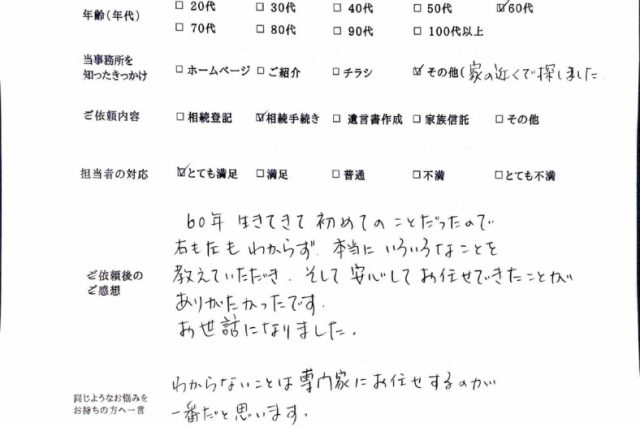 年齢（年代）
□20代 □30代 □40代 □50代 ☑60代
□70代 □80代 □90代 □100代以上
当事務所を
知ったきっかけ
□ホームページ □ご紹介 □チラシ ☑その他（家の近くで探しました
ご依頼内容
□相続登記 ☑相続手続き □遺言書作成 □家族信託 □その他
担当者の対応
☑とても満足 □満足 □普通 □不満 □とても不満
ご依頼後の
ご感想
60年 生きてきて 初めてのことだったので
右も左も わからず、本当に いろいろなことを
教えていただき、そして 安心して お任せできたことが
ありがたかったです。
お世話になりました。
同じようなお悩みを
お持ちの方へ一言
わからないことは 専門家に お任せするのが
一番だと思います。